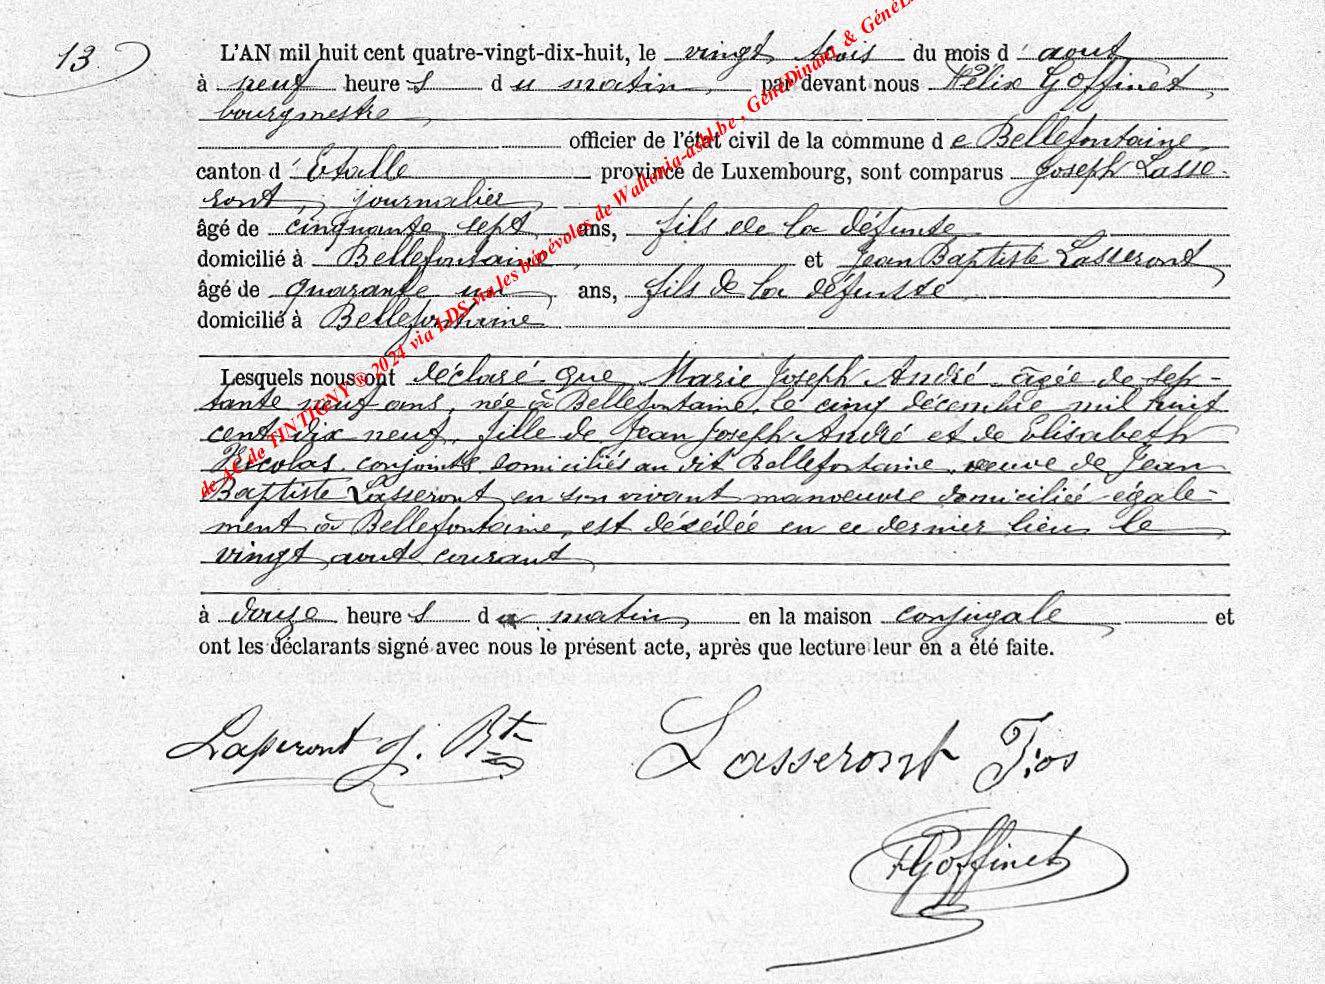 13
L'AN mil huit cent quatre-vingt-dix-huit, le vingt trois du mois d'aout
à neuf heures du matin, par devant nous Félix Goffinet,
bourgmestre,
officier de l'état civil de la commune de Bellefontaine,
canton d'Etalle province de Luxembourg, sont comparus Joseph Lasse-
ront, journalier,
âgé de cinquante sept ans, fils de la défunte
domicilié à Bellefontaine, et Jean Baptiste Lasseront
âgé de quarante un ans, fils de la défunte
domicilié à Bellefontaine
Lesquels nous ont déclaré que Marie Joseph André âgée de sep-
tante neuf ans, née à Bellefontaine, le cinq décembre mil huit
cent dix neuf, fille de Jean Joseph André et de Elisabeth
Nicolas, conjoints domiciliés au dit Bellefontaine, veuve de Jean
Baptiste Lasseront en son vivant manoeuvre domiciliée égale-
ment à Bellefontaine, est désédée en ce dernier lieu le
vingt aout courant
à douze heures du matin en la maison conjugale et
ont les déclarants signé avec nous le présent acte, après que lecture leur en a été faite.
Lasseront J. Bte Lasseront Jos
FGoffinet
de AC de TINTIGNY ® 2024 via LDS via les bénévoles de Wallonia-asbl.be, GénéDinant & GénéL